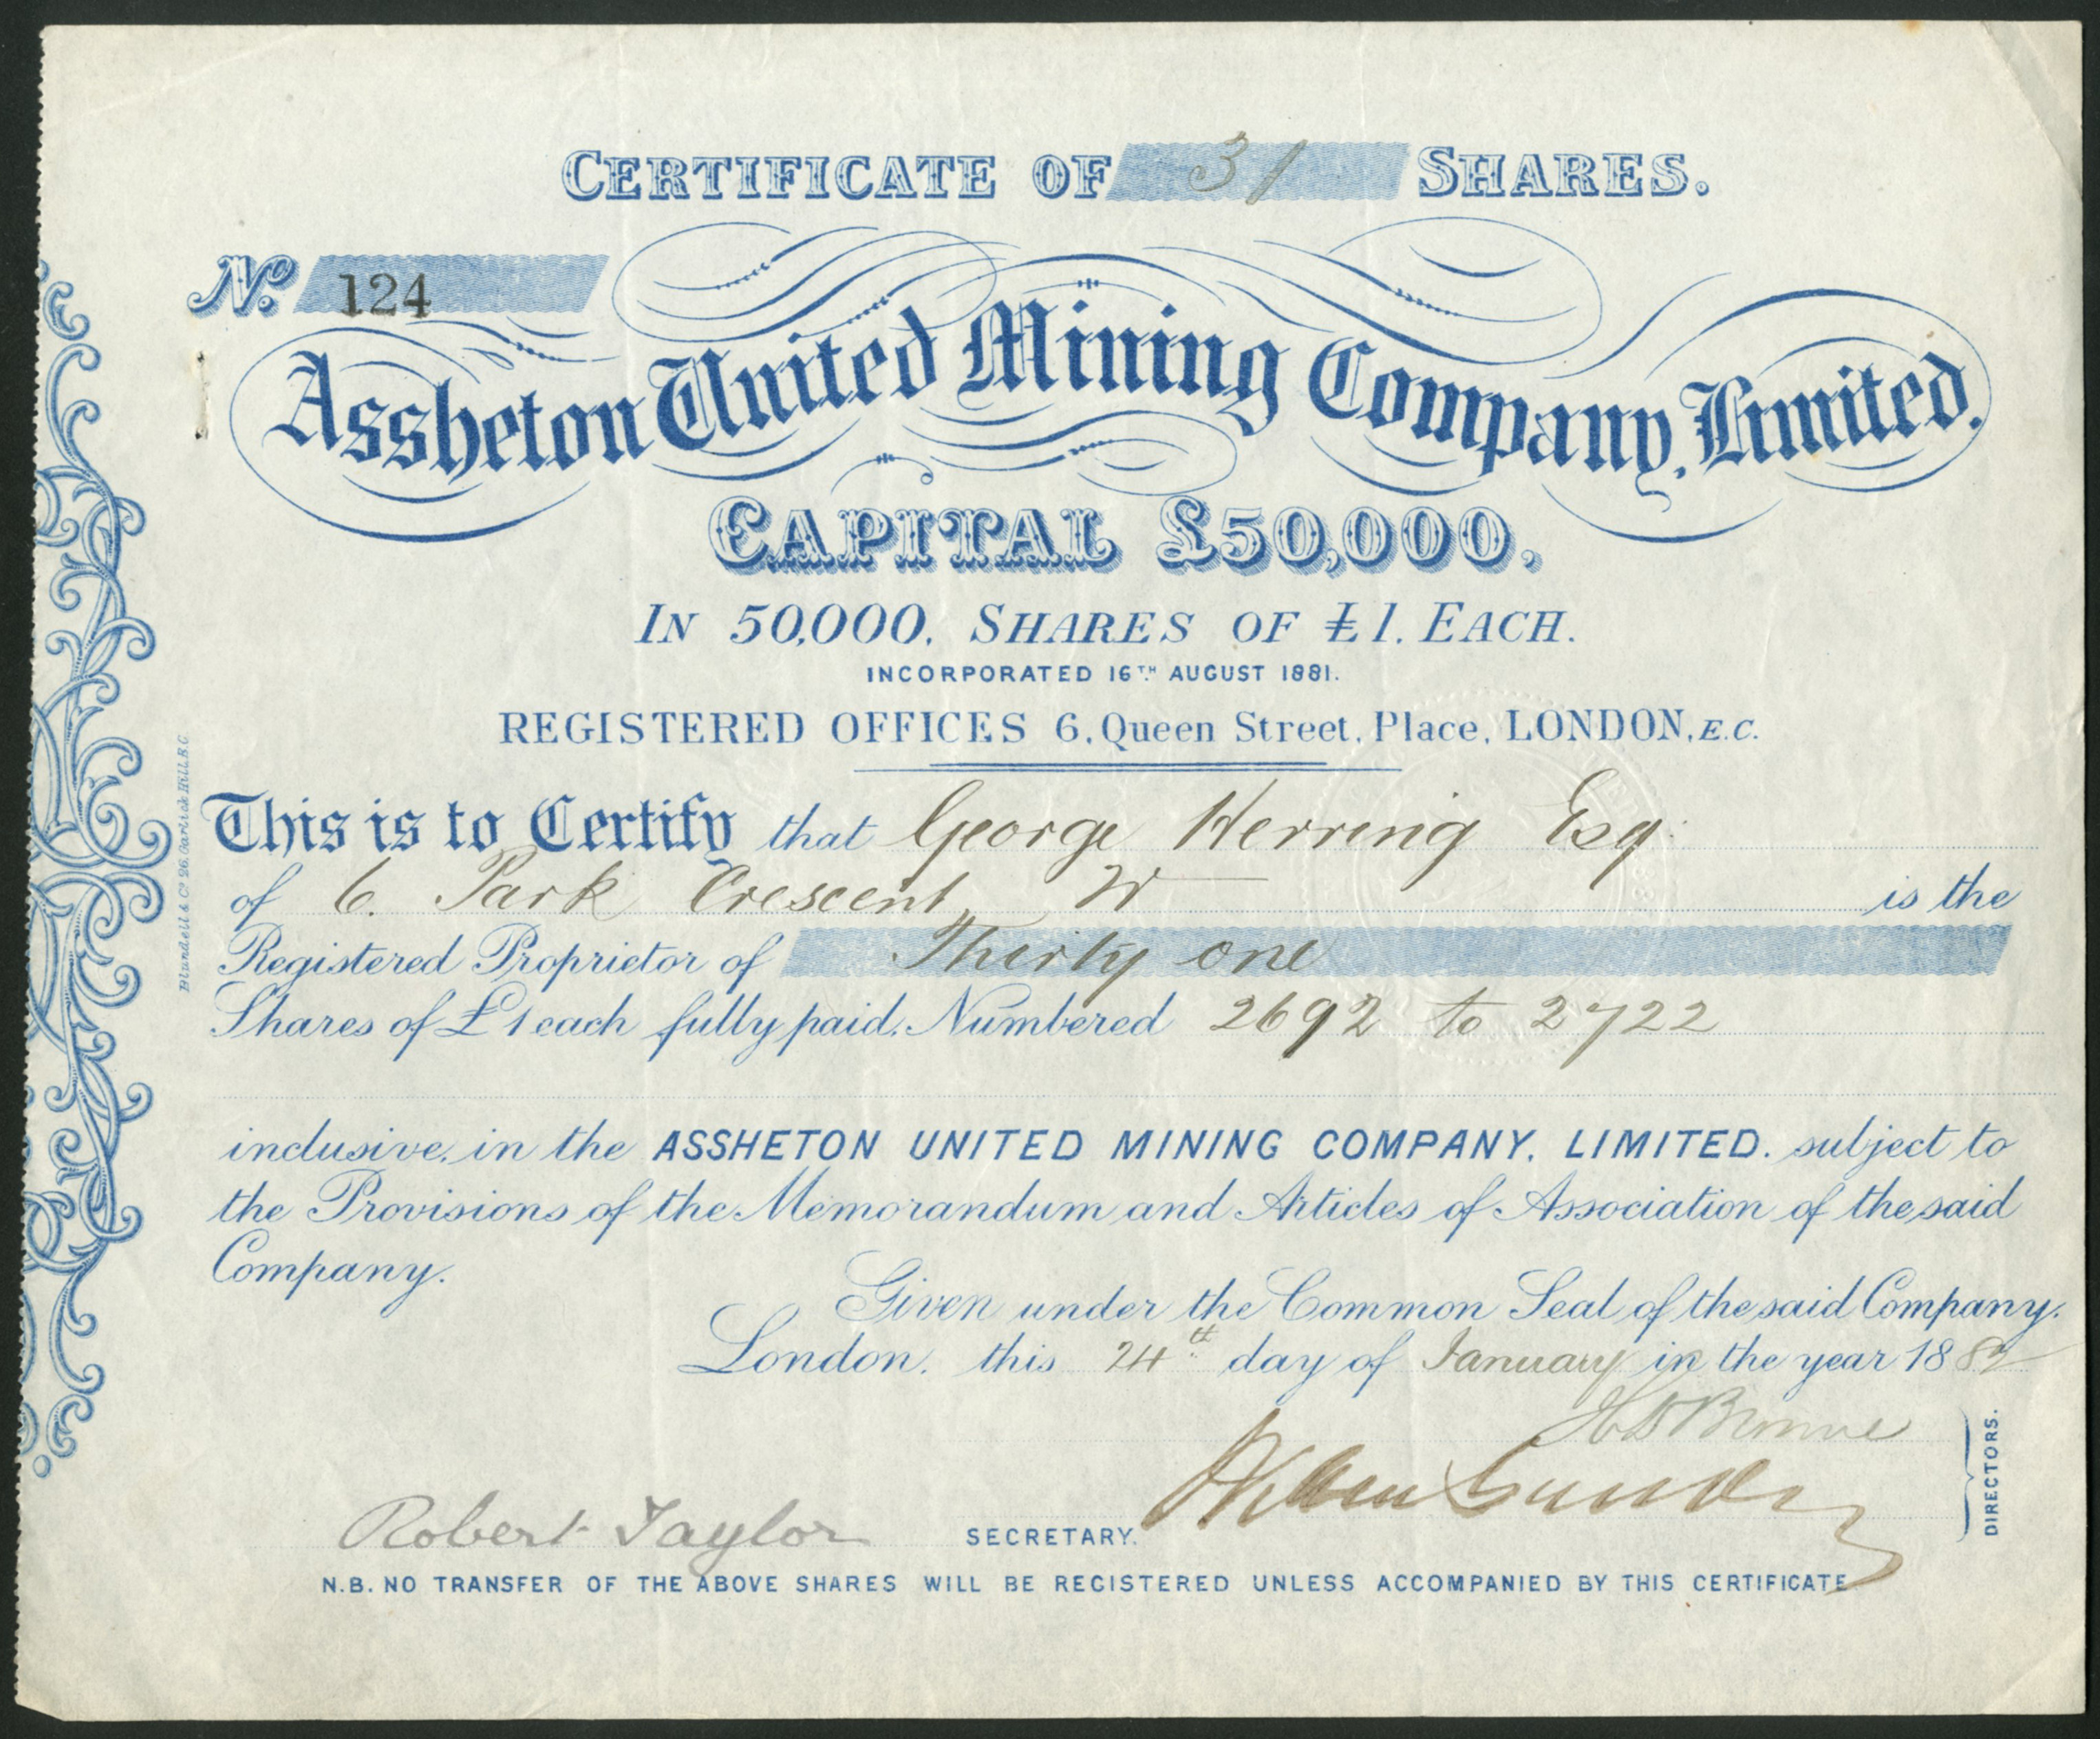 CERTIFICATE OF 31 SHARES.
No. 124
Assheton United Mining Company, Limited.
CAPITAL £50,000.
IN 50,000, SHARES OF £1. EACH.
INCORPORATED 16TH AUGUST 1881.
REGISTERED OFFICES 6, Queen Street, Place, LONDON, E.C.
This is to Certify that George Herring Esq:
of 6. Park Crescent W is the
Registered Proprietor of Thirty one
Shares of £1 each fully paid. Numbered 2692 to 2722
inclusive, in the ASSHETON UNITED MINING COMPANY, LIMITED. subject to
the Provisions of the Memorandum and Articles of Association of the said
Company.
Given under the Common Seal of the said Company.
London. this 24th day of January in the year 1882
DIRECTORS.
Robert Taylor SECRETARY.
N.B. NO TRANSFER OF THE ABOVE SHARES WILL BE REGISTERED UNLESS ACCOMPANIED BY THIS CERTIFICATE
Blundell & Co. 26, Garlick Hill, E.C